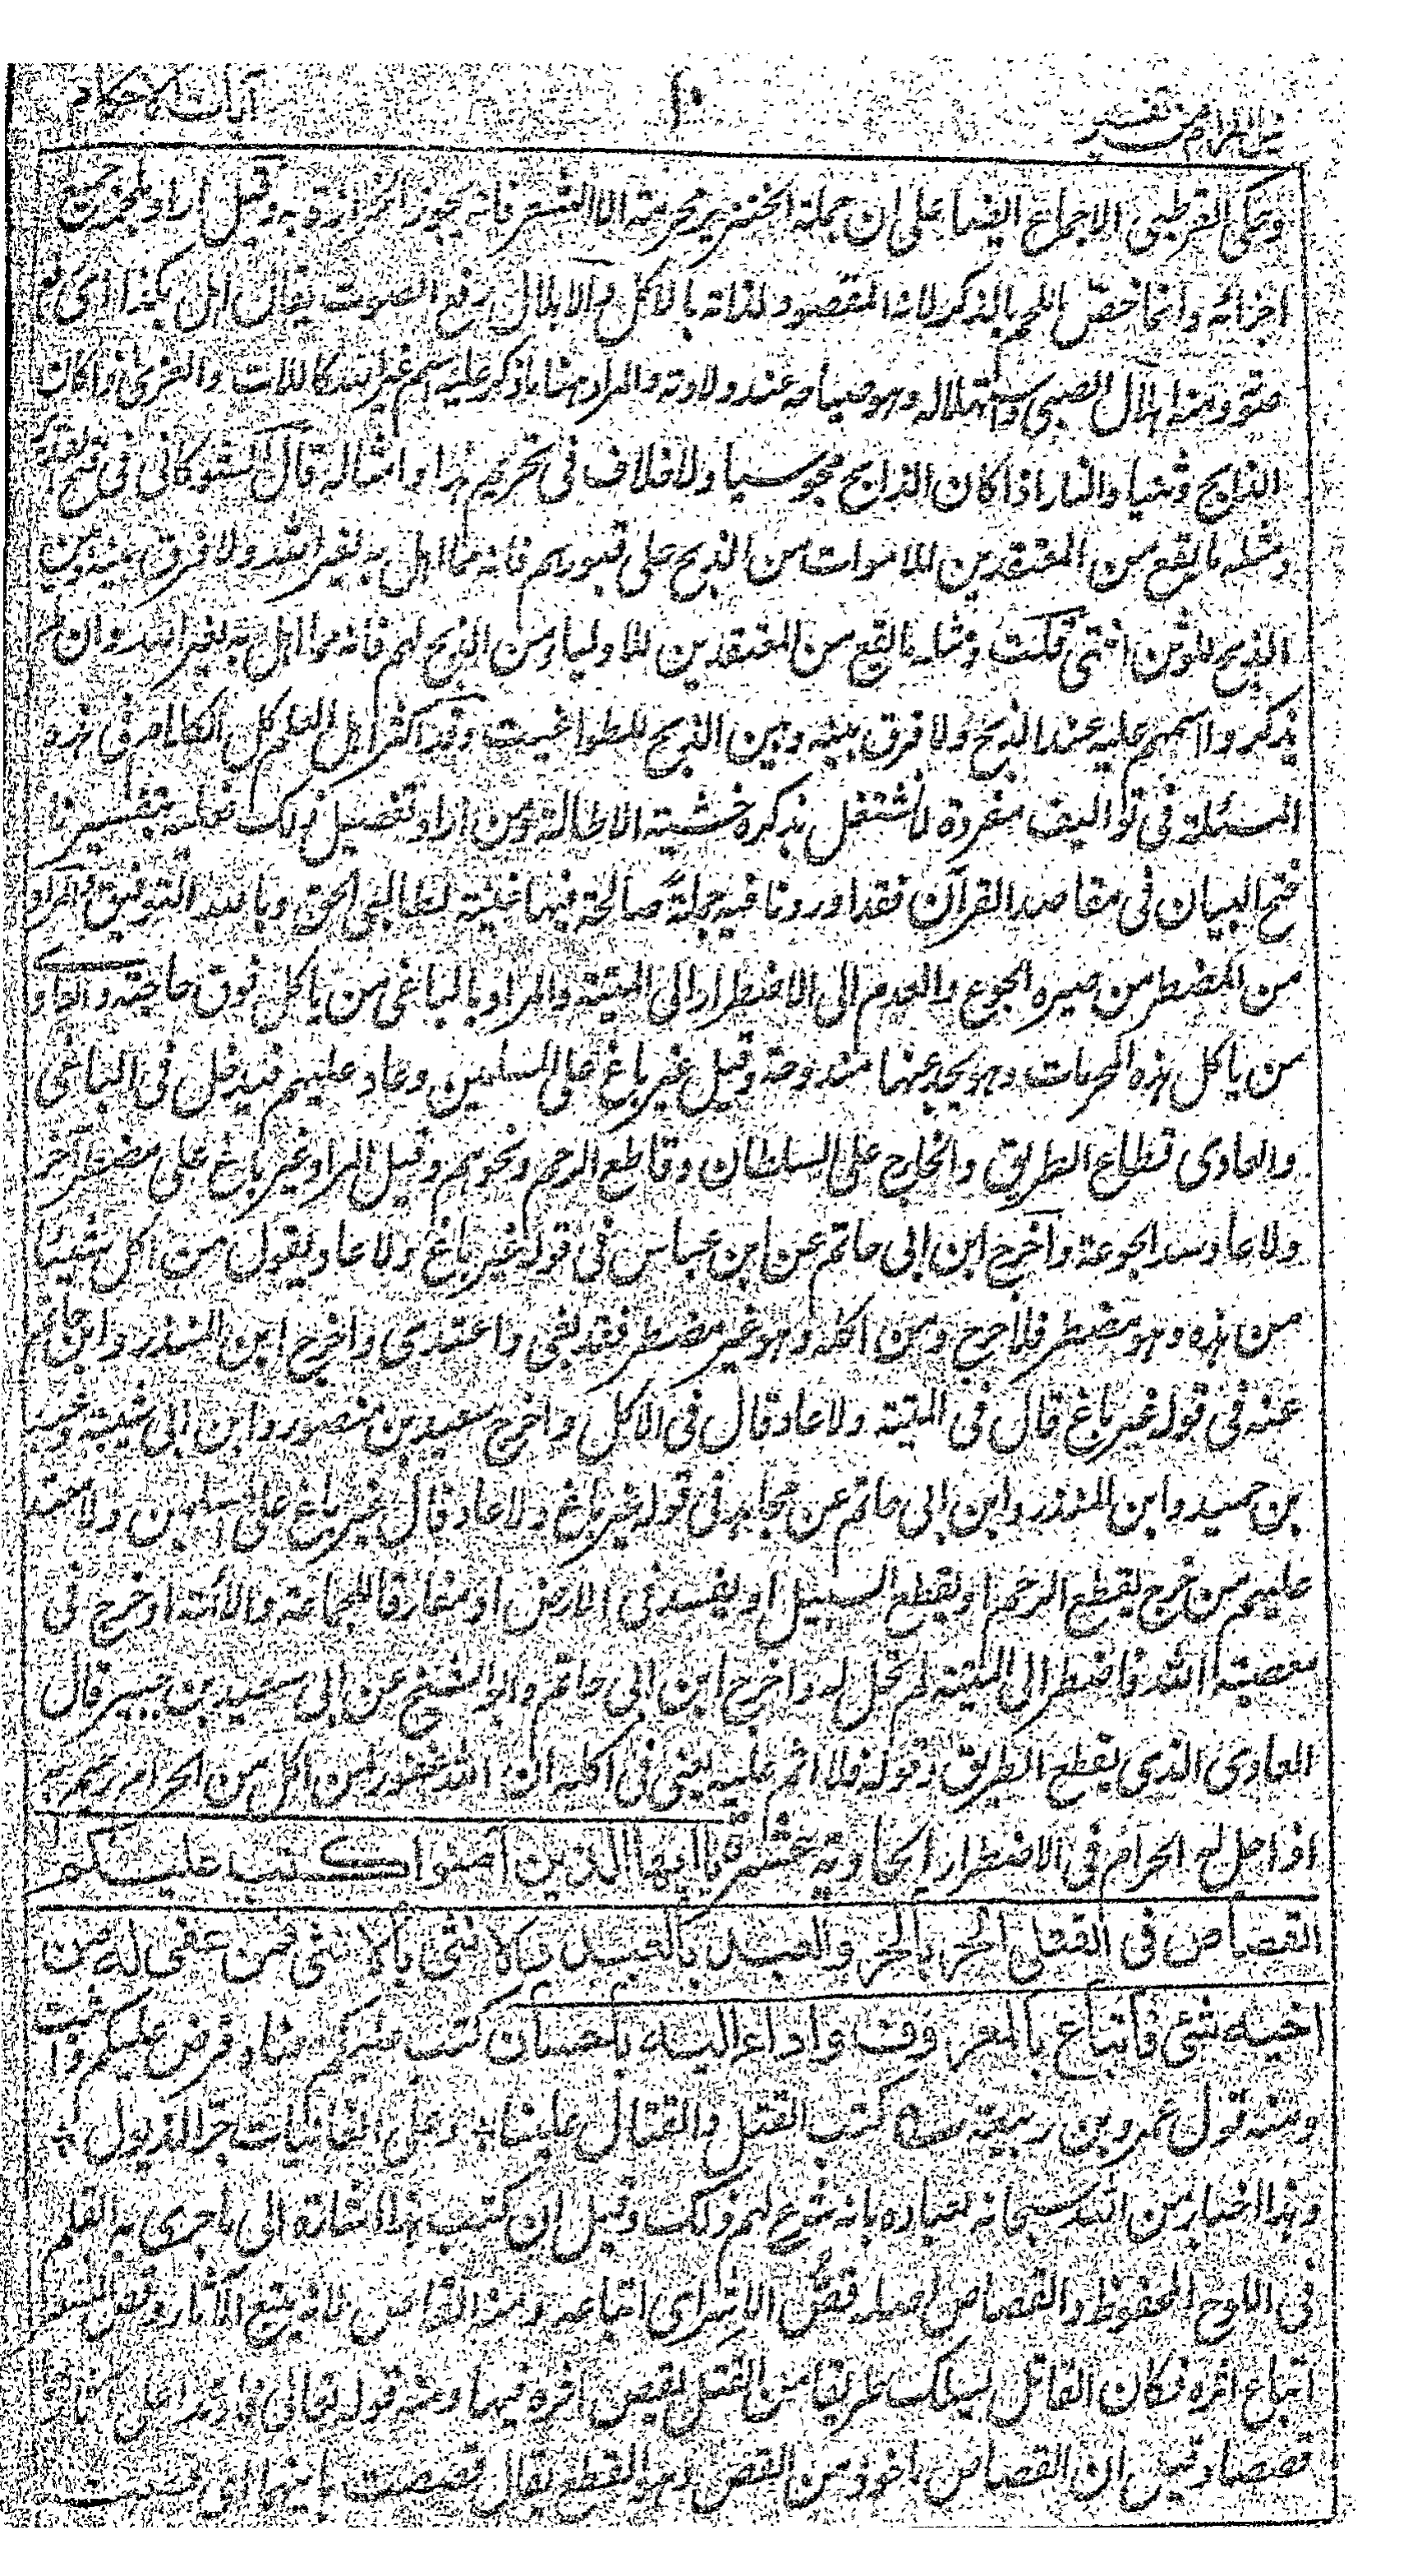 نيل المرام من تفسير ١٠ آيات الاحكام
وحكى القرطبي الاجماع ايضا على ان جملة الخنزير محرمة الا الشعر فانه يجوز الخرازة به وقيل اراد بلحمه جميع
اجزائه وانما خص اللحم بالذكر لانه المقصود لذاته بالاكل والاهلال رفع الصوت يقال اهل بكذا اى رفع
صوته ومنه اهلال الصبي واستهلاله وهو صياحه عند ولادته والمراد هنا ما ذكر عليه اسم غير الله كاللات والعزى اذا كان
الذابح وثنيا والنار اذا كان الذابح مجوسيا ولا خلاف فى تحريم هذا وامثاله قال الشوكانى فى فتح القدير
ومثله ما يقع من المعتقدين للاموات من الذبح على قبورهم فانه مما اهل به لغير الله ولا فرق بينه وبين
الذبح للوثن انتهى قلت ومثله ما يقع من المعتقدين للاولياء من الذبح لهم فانه مما اهل به لغير الله وان لم
يذكروا اسمهم عليه عند الذبح ولا فرق بينه وبين الذبح للطواغيت وقد اكثر اهل العلم كل الكلام فى هذه
المسئلة فى تواليف مفردة لا نشتغل بذكره خشية الاطالة ومن اراد تفصيل ذلك فعليه بتفسيرنا
فتح البيان فى مقاصد القرآن فقد اوردنا فيه جملة صالحة فيها غنية لطالبى الحق وبالله التوفيق والمراد
من المضطر من صيره الجوع والعدم الى الاضطرار الى الميتة والمراد بالباغى من ياكل فوق حاجته والعادى
من ياكل هذه المحرمات وهو يجد عنها مندوحة وقيل غير باغ على المسلمين وعاد عليهم فيدخل فى الباغى
والعادى قطاع الطريق والخارج على السلطان وقاطع الرحم ونحوهم وقيل المراد غير باغ على مضطر آخر
ولا عاد سد الجوعة واخرج ابن ابى حاتم عن ابن عباس فى قوله غير باغ ولا عاد يقول من اكل شيئا
من هذه وهو مضطر فلا حرج ومن اكله وهو غير مضطر فقد بغى واعتدى واخرج ابن المنذر وابن حاتم
عنه فى قوله غير باغ قال فى الميتة ولا عاد قال فى الاكل واخرج سعيد بن منصور وابن ابى شيبة وعبد
بن حميد وابن المنذر وابن ابى حاتم عن مجاهد فى قوله غير باغ ولا عاد قال غير باغ على المسلمين ولا معتد
عليهم من خرج يقطع الرحم او يقطع السبيل او يفسد فى الارض او مفارقا للجماعة والائمة او خرج فى
معصية الله فاضطر الى الميتة لم تحل له واخرج ابن ابى حاتم وابو الشيخ عن ابى سعيد بن جبير قال
العادى الذى يقطع الطريق وقوله فلا اثم عليه يعنى فى اكله ان الله غفور لمن اكل من الحرام رحيم به
اذا احل له الحرام فى الاضطرار الحادية عشرة يا ايها الذين آمنوا كتب عليكم
القصاص فى القتلى الحر بالحر والعبد بالعبد والانثى بالانثى فمن عفى له من
اخيه شئ فاتباع بالمعروف واداء اليه باحسان كتب عليكم معناه فرض عليكم واثبت
ومنه قول عمرو بن ربيعة كتب القتل والقتال علينا وعلى الغانيات جر الذيول
وهذا اخبار من الله سبحانه لعباده بانه شرع لهم ذلك وقيل ان كتب هذا اشارة الى ما جرى به القلم
فى اللوح المحفوظ والقصاص اصله قص الاثر اى اتباعه ومنه القاص لانه يتبع الآثار وقص الشعر
اتباع اثره فكان القاتل يسلك طريقا من القتل يقص اثره فيها ومنه قوله تعالى فارتدا على آثارهما
قصصا وقيل ان القصاص ماخوذ من القص وهو القطع يقال قصصت ما بينهما اى